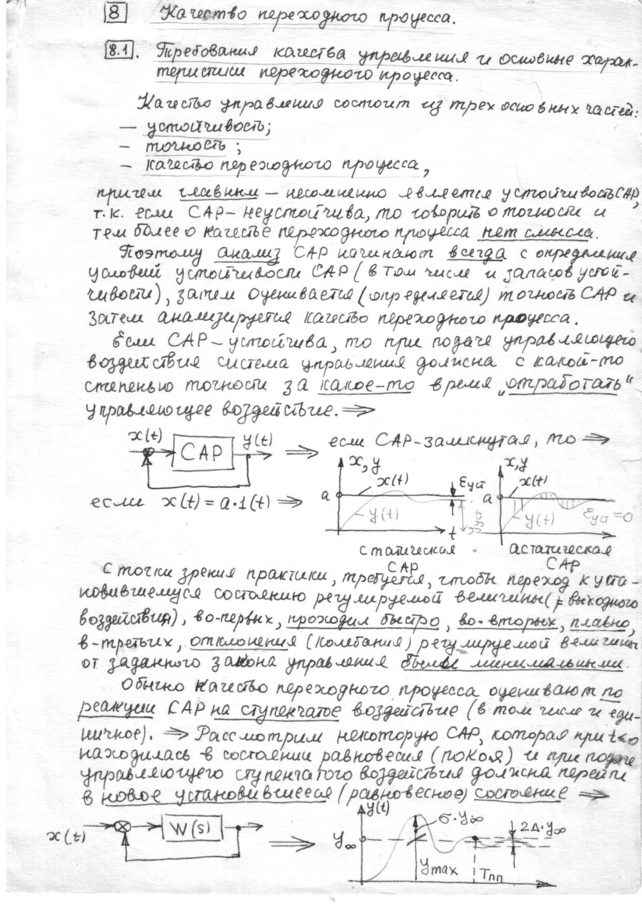 8 Качество переходного процесса.
8.1. Требования качества управления и основные харак-
теристики переходного процесса.
Качество управления состоит из трех основных частей:
— устойчивость;
— точность;
— качество переходного процесса,
причем главным — несомненно является устойчивость САР,
т.к. если САР - неустойчива, то говорить о точности и
тем более о качестве переходного процесса нет смысла.
Поэтому анализ САР начинают всегда с определения
условий устойчивости САР (в том числе и запасов устой-
чивости), затем оценивается (определяется) точность САР и
затем анализируется качество переходного процесса.
Если САР - устойчива, то при подаче управляющего
воздействия система управления должна с какой-то
степенью точности за какое-то время „отработать"
управляющее воздействие. ⇒
x(t) САР y(t) ⇒ если САР-замкнутая, то ⇒
если x(t) = a·1(t) ⇒
x, y
x(t)
εуст
a
y(t)
t
статическая
САР
x, y
x(t)
a
y(t)
εуст=0
астатическая
САР
С точки зрения практики, требуется, чтобы переход к уста-
новившемуся состоянию регулируемой величины (= выходного
воздействия), во-первых, проходил быстро, во-вторых, плавно,
в-третьих, отклонения (колебания) регулируемой величины
от заданного закона управления были минимальными.
Обычно качество переходного процесса оценивают по
реакции САР на ступенчатое воздействие (в том числе и еди-
ничное). ⇒ Рассмотрим некоторую САР, которая при t<0
находилась в состоянии равновесия (покоя) и при подаче
управляющего ступенчатого воздействия должна перейти
в новое установившееся (равновесное) состояние ⇒
x(t) W(s) ⇒
y(t)
σ·y∞
2Δ·y∞
y∞
ymax
Tпп